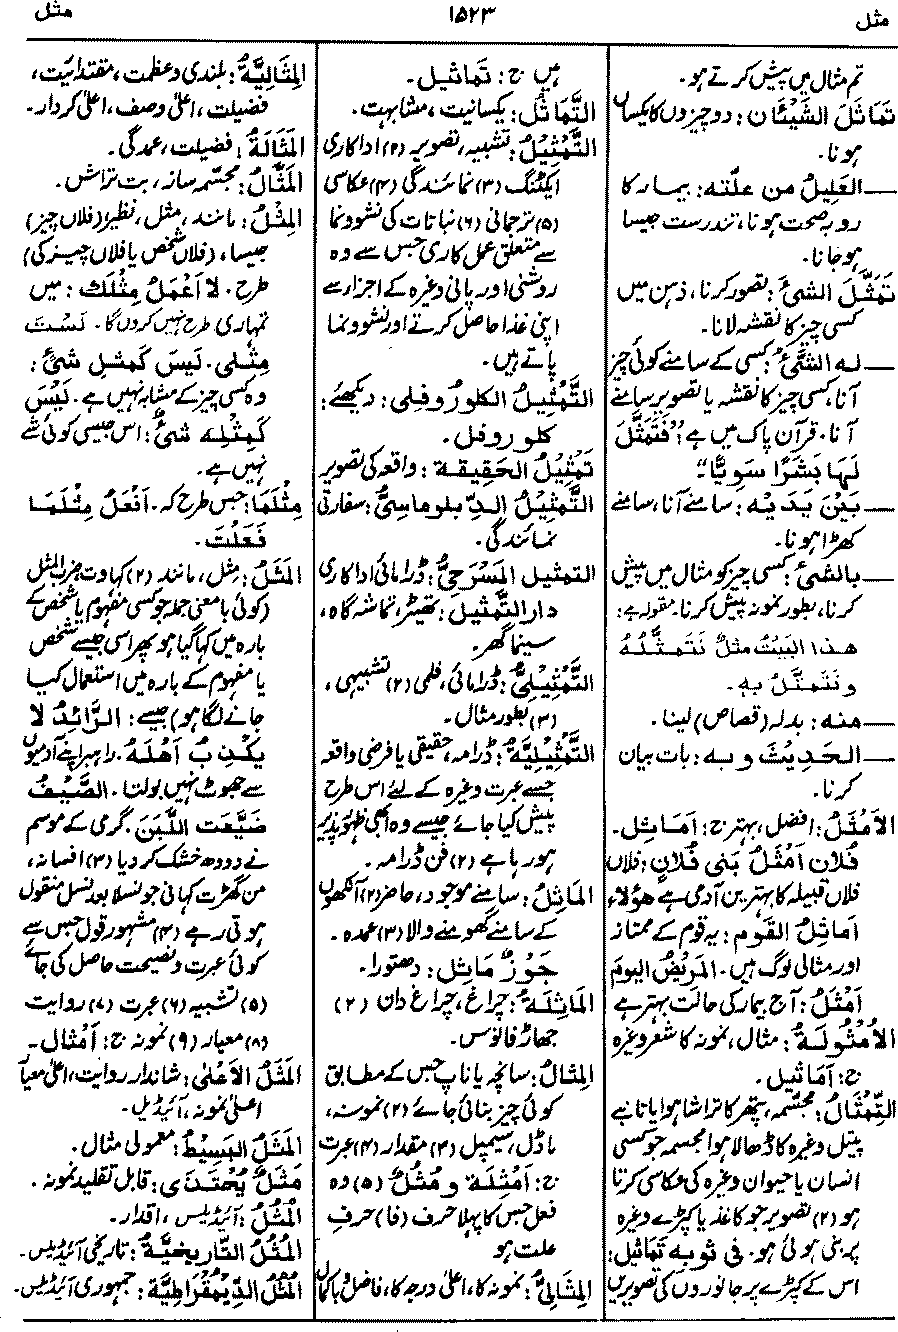 مثل
۱۵۲۳
مثل
تم مثال میں پیش کرتے ہو۔
تَمَاثَلَ الشَّیْئَان : دو چیزوں کا یکساں
ہونا۔
ــــ العَلِيلُ من علّته: بیمار کا
روبہ صحت ہونا، تندرست جیسا
ہوجانا۔
تَمَثَّلَ الشیءَ : تصور کرنا، ذہن میں
کسی چیز کا نقشہ لانا۔
ــــ له الشیءُ : کسی کے سامنے کوئی چیز
آنا، کسی چیز کا نقشہ یا تصویر سامنے
آنا۔ قرآن پاک میں ہے: "فَتَمَثَّلَ
لَهَا بَشَرًا سَوِيًّا"
ــــ بَيْنَ يَدَيْهِ : سامنے آنا، سامنے
کھڑا ہونا۔
ــــ بالشیءِ : کسی چیز کو مثال میں پیش
کرنا، بطور نمونہ پیش کرنا۔ مقولہ ہے:
هذا البَيْتُ مثلٌ نَتَمَثَّلُهُ
و نَتَمَثَّلُ به۔
ــــ منه : بدلہ (قصاص) لینا۔
ــــ الحَدِیثَ و به : بات بیان
کرنا۔
الأَمْثَلُ : افضل، بہتر ج: أَمَاثِل۔
فُلَان أَمْثَلُ بَنی فُلَانٍ : فلاں
فلاں قبیلہ کا بہترین آدمی ہے هؤلاء
أَمَاثِلُ القَوم : یہ قوم کے ممتاز
اور مثالی لوگ ہیں۔ المَرِیْضُ الیومَ
أَمْثَلُ : آج بیمار کی حالت بہتر ہے
الأُمْثُولَةُ : مثال، نمونہ کا شعر وغیرہ
ج: أَمَاثِيل۔
التِّمْثَالُ : مجسّمہ، پتھر کا تراشا ہوا یا تانبے
پیتل وغیرہ کا ڈھالا ہوا مجسمہ جو کسی
انسان یا حیوان وغیرہ کی عکاسی کرتا
ہو (۲) تصویر جو کاغذ یا کپڑے وغیرہ
پر بنی ہوئی ہو۔ فی ثوبه تَمَاثِيل :
اس کے کپڑے پر جانوروں کی تصویریں
ہیں ج: تَمَاثِيل۔
التَّمَاثُل : یکسانیت، مشابہت۔
التَّمْثِيلُ : تشبیہ، تصویر (۲) اداکاری
ایکٹنگ (۳) نمائندگی (۴) عکاسی
(۵) ترجمانی (۶) نباتات کی نشوونما
سے متعلق عمل کاری جس سے وہ
روشنی اور پانی وغیرہ کے اجزار سے
اپنی غذا حاصل کرتے اور نشوونما
پاتے ہیں۔
التَّمْثِيلُ الكلورُوفلی : دیکھئے:
کلوروفل۔
تَمْثِيْلُ الحَقِيقة : واقعہ کی تصویر
التَّمْثِيْلُ الدِّبلوماسیُّ : سفارتی
نمائندگی۔
التمثيل المَسْرَحِیُّ : ڈرامائی اداکاری
دار التَّمْثِيل : تھیٹر، تماشہ گاہ،
سینما گھر۔
التَّمْثِيْلِیُّ : ڈرامائی، فلمی (۲) تشبیہی،
(۳) بطور مثال۔
التَّمْثِيْلِيَّةُ : ڈرامہ، حقیقی یا فرضی واقعہ
جسے عبرت وغیرہ کے لئے اس طرح
پیش کیا جائے جیسے وہ ابھی ظہور پذیر
ہو رہا ہے (۲) فن ڈرامہ۔
المَاثِلُ : سامنے موجود، حاضر (۲) آنکھوں
کے سامنے گھومنے والا (۳) عمدہ۔
جَوْزُ مَاثِل : دھتورا۔
المَاثِلَةُ : چراغ، چراغ دان (۲)
جھاڑ فانوس۔
المِثَالُ : سانچہ یا ناپ جس کے مطابق
کوئی چیز بنائی جائے (۲) نمونہ،
ماڈل، سیمپل (۳) مقدار (۴) عبرت
ج: أَمْثِلَة و مُثُلٌ (۵) وہ
فعل جس کا پہلا حرف (فا) حرفِ
علت ہو
المِثَالِیُّ : نمونہ کا، اعلیٰ درجہ کا، فاضل و باکمال
المِثَالِيَّةُ : بلندی و عظمت، مقتدائیت،
فضیلت، اعلیٰ وصف، اعلیٰ کردار۔
المَثَالَةُ : فضیلت، عمدگی۔
المَثَّالُ : مجسّمہ ساز، بت تراش۔
المِثْلُ : مانند، مثل، نظیر؛ (فلاں چیز)
جیسا، (فلاں شخص یا فلاں چیز کی)
طرح۔ لا أَعْمَلُ مِثْلَكَ : میں
تمہاری طرح نہیں کروں گا۔ لَسْتَ
مِثْلی۔ لَيْسَ كَمثلِ شیءٍ :
وہ کسی چیز کے مشابہ نہیں ہے۔ لَيْسَ
كَمِثْلِه شیءٌ : اس جیسی کوئی شے
نہیں ہے۔
مِثْلَمَا : جس طرح کہ۔ أَفْعَلُ مِثْلَمَا
فَعَلْتَ۔
المَثَلُ : مِثل، مانند (۲) کہاوت، ضرب المثل
(کوئی بامعنی جملہ جو کسی مفہوم یا شخص کے
بارہ میں کہا گیا ہو پھر اسی جیسے شخص
یا مفہوم کے بارہ میں استعمال کیا
جانے لگا ہو) جیسے : الرَّائِدُ لا
يَكْذِبُ أَهْلَهُ۔ راہبر اپنے آدمیوں
سے جھوٹ نہیں بولتا۔ الصَّيْفَ
ضَيَّعَتِ اللَّبَنَ۔ گرمی کے موسم
نے دودھ خشک کر دیا (۳) افسانہ،
من گھڑت کہانی جو نسلا بعد نسل منقول
ہوتی رہے (۴) مشہور قول جس سے
کوئی عبرت و نصیحت حاصل کی جائے
(۵) تشبیہ (۶) عبرت (۷) روایت
(۸) معیار (۹) نمونہ ج: أَمْثَال۔
المَثَلُ الأَعْلیٰ : شاندار روایت، اعلیٰ معیار
اعلیٰ نمونہ، آئیڈیل۔
المَثَلُ البَسِيْطُ : معمولی مثال۔
مَثَلٌ يُحْتَذَى : قابل تقلید نمونہ۔
المُثُلُ : آئیڈیلس، اقدار۔
المُثُلُ التَّارِيخِيَّةُ : تاریخی آئیڈیلس۔
المُثُلُ الدِّيمُقْرَاطِيَّة : جمہوری آئیڈیلس۔